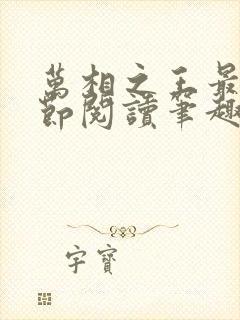 萬相之王最
節閱讀筆趣
宇寶